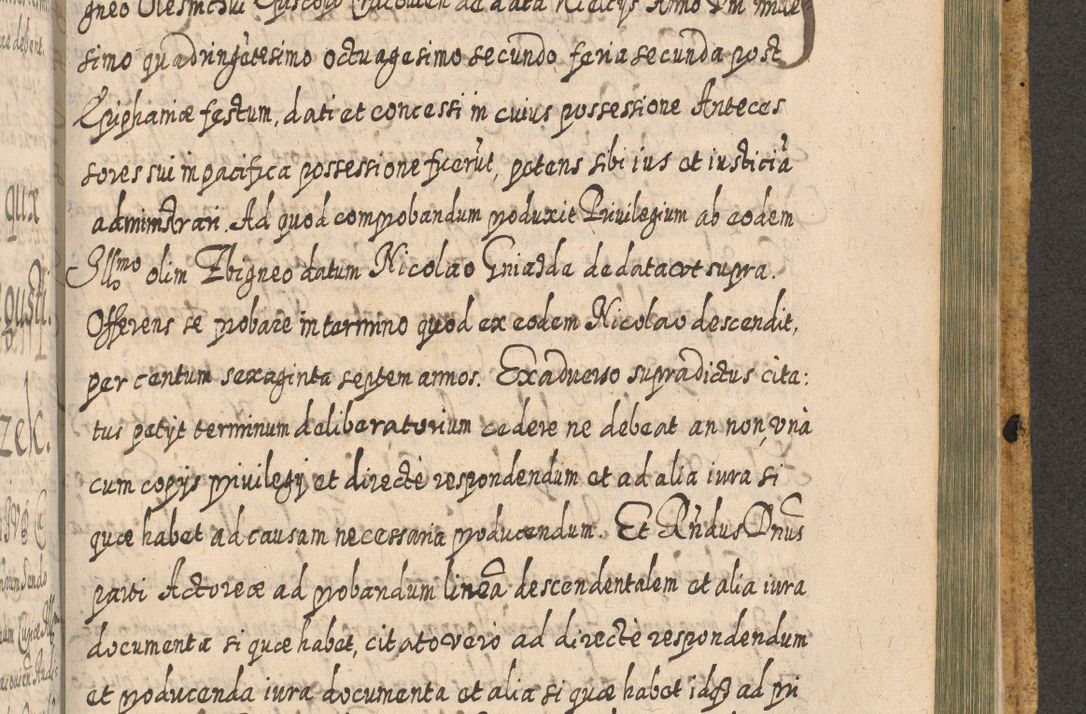 gneo Olesnicski Episcopo Cracovien de data Kielcijs Anno Dni mille-
simo quadringētesimo octuagesimo secundo feria secunda post
Epiphaniæ festum, dati et concessi in cuius possessione Anteces
sores sui in pacifica possessione fuerūt, petens sibi ius et iusticiā
administrari. Ad quod comprobandum produxit Privilegium ab eodem
Illmo olim Zbigneo datum Nicolao Gniazda de data ut supra.
Offerens se probare in termino quod ex eodem Nicolao descendit,
per centum sexaginta septem annos. Ex adverso supradictus cita:
tus petijt terminum deliberatorium cedere ne debeat an non, vnà
cum copijs privilegij et directè respondendum et ad alia iura si
quæ habet ad causam necessaria producendum. Et Rñdus Dnus
parti Actoreæ ad probandum lineā descendentalem et alia iura
documenta si quæ habet, citato vero ad directè respondendum
et producenda iura documenta et alia si quæ habet idq3 ad pri
quæ